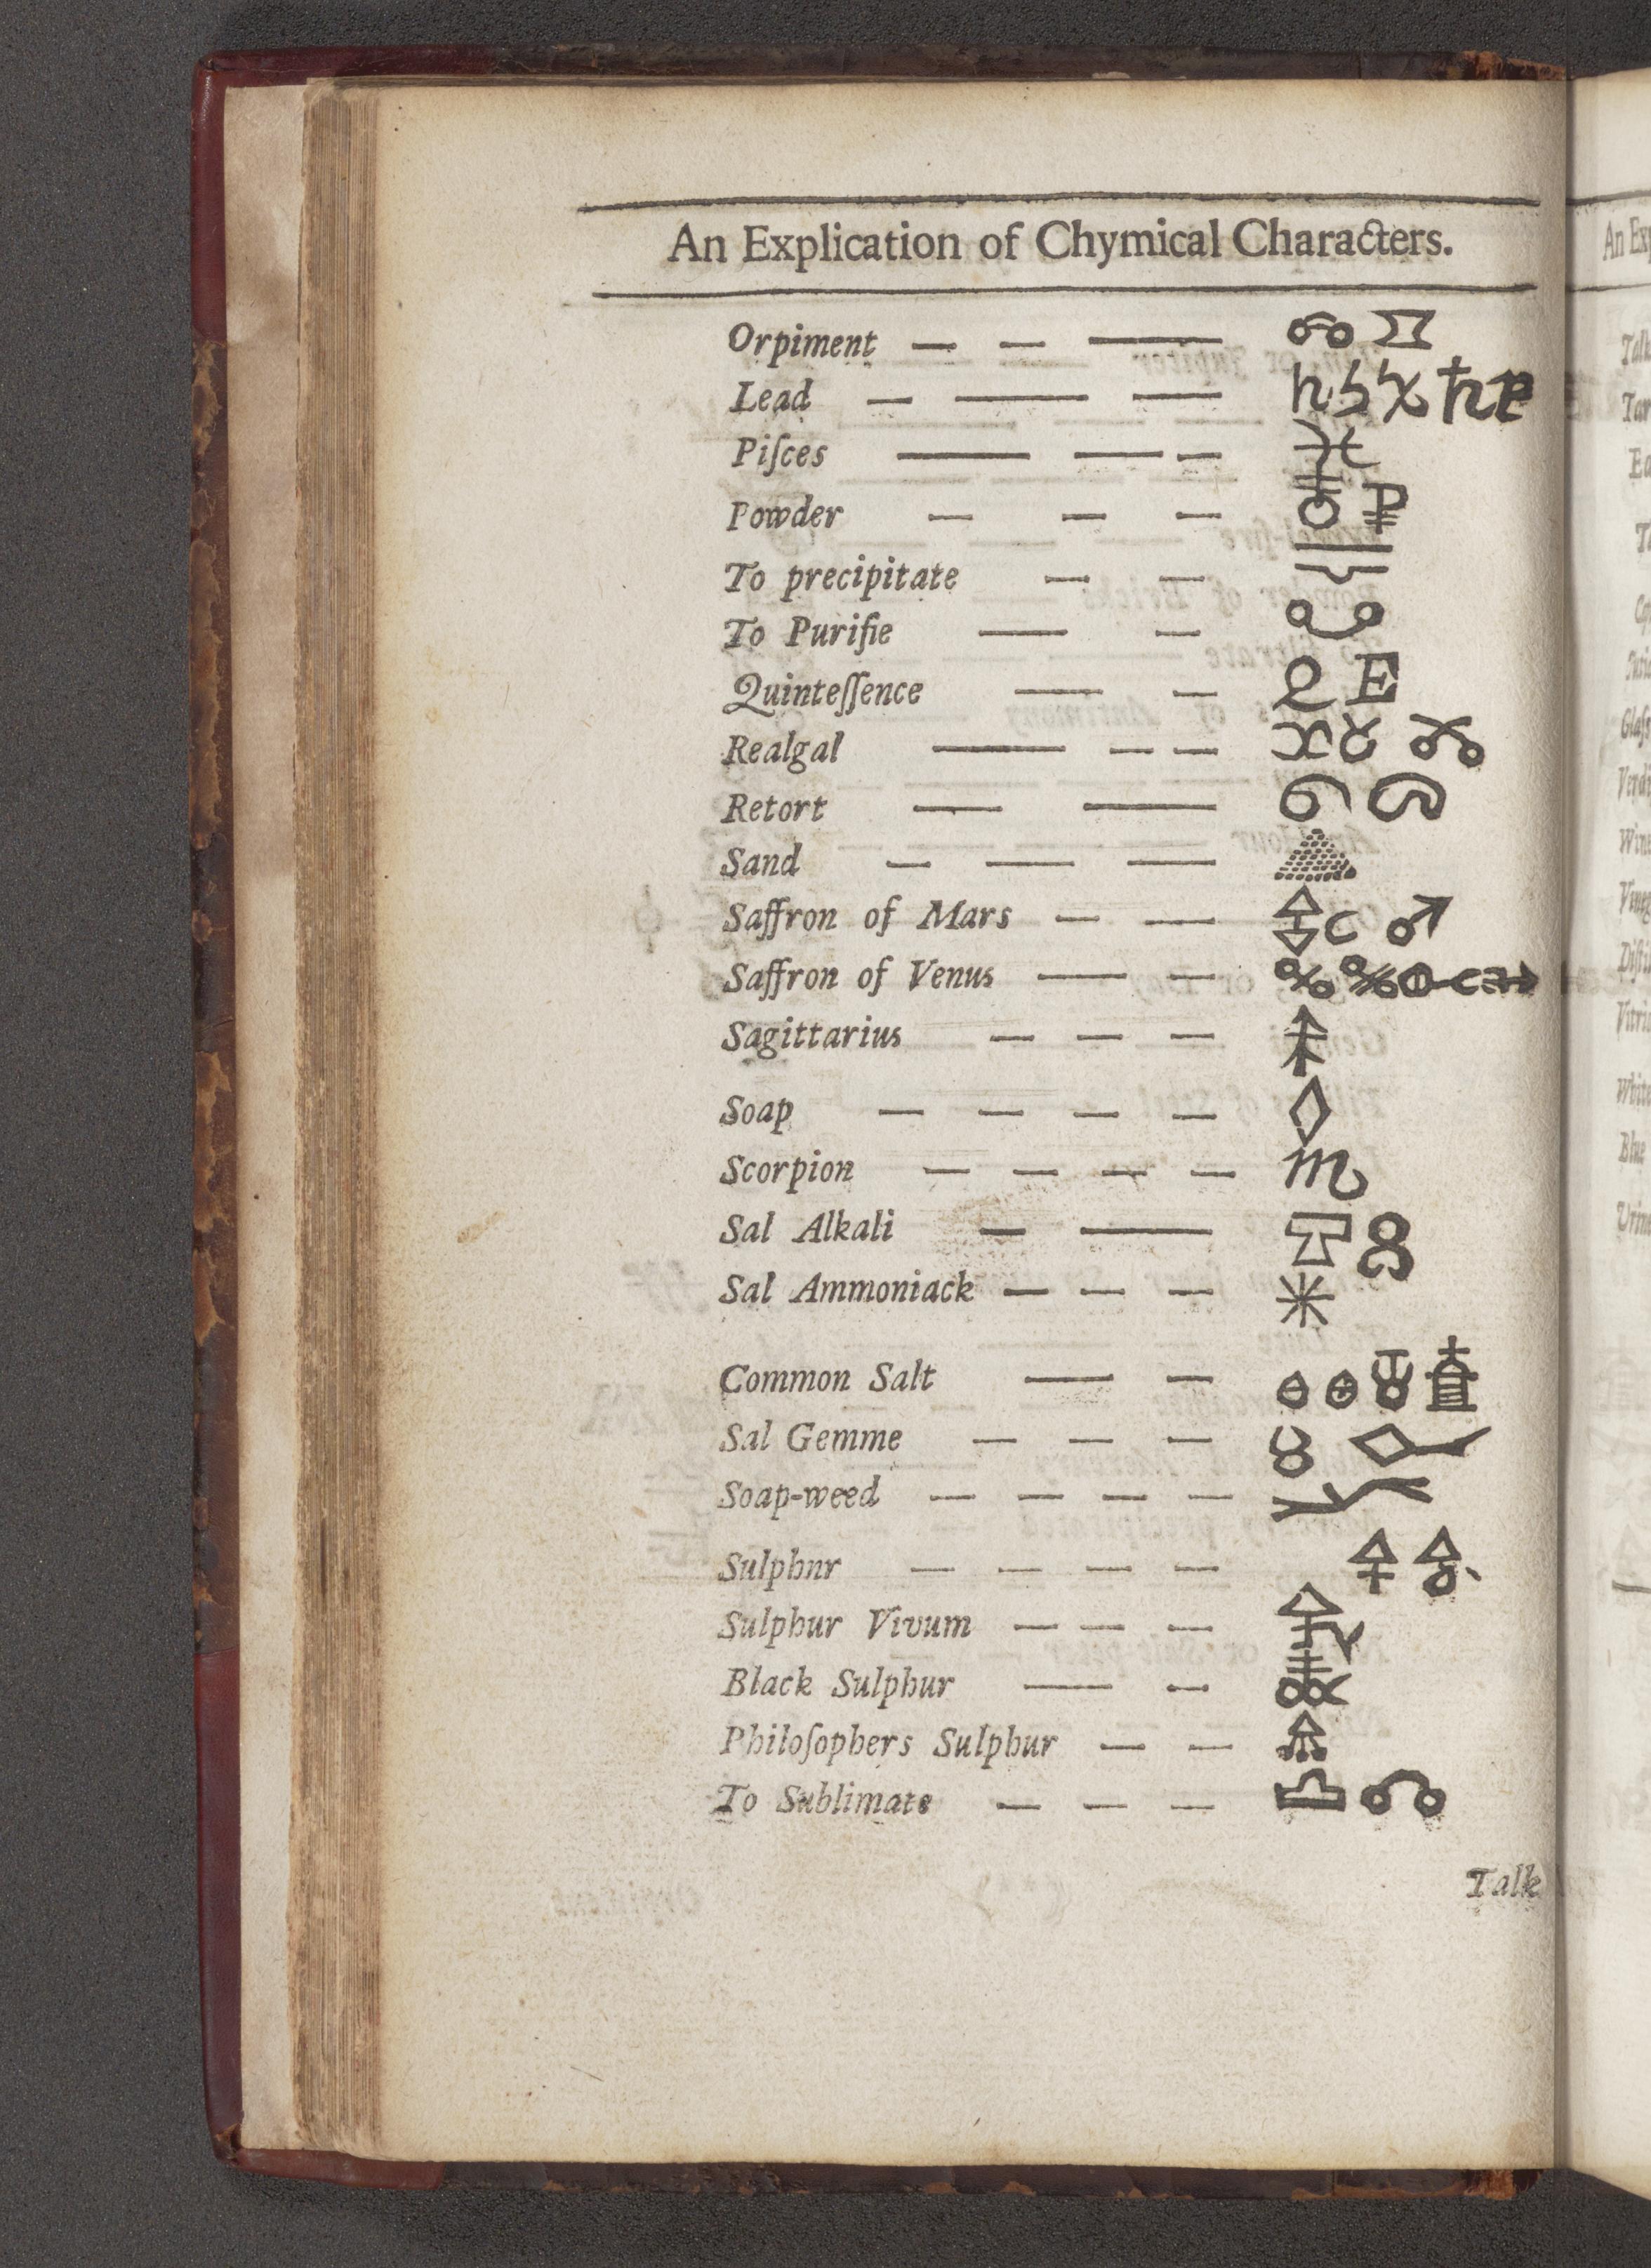 An Explication of Chymical Characters.
Orpiment — — —
Lead — — — ♄
Piſces — — — ♓
Powder — — —
To precipitate — —
To Purifie — —
Quinteſſence — — Q E
Realgal — — —
Retort — —
Sand — — —
Saffron of Mars — — ♂
Saffron of Venus — —
Sagittarius — — —
Soap — — — —
Scorpion — — — — ♏
Sal Alkali — —
Sal Ammoniack — — —
Common Salt — —
Sal Gemme — — —
Soap-weed — — — —
Sulphnr — — — —
Sulphur Vivum — — —
Black Sulphur — —
Philoſophers Sulphur — —
To Sublimate — — —
Talk